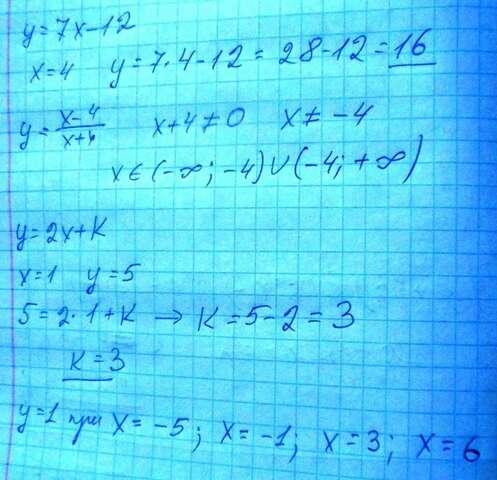 y=7x-12
x=4 y=7·4-12=28-12=16
y=\frac{x-4}{x+4} x+4≠0 x≠-4
x∈(-∞;-4)∪(-4;+∞)
y=2x+K
x=1 y=5
5=2·1+K → K=5-2=3
K=3
y=1 при x=-5; x=-1; x=3; x=6